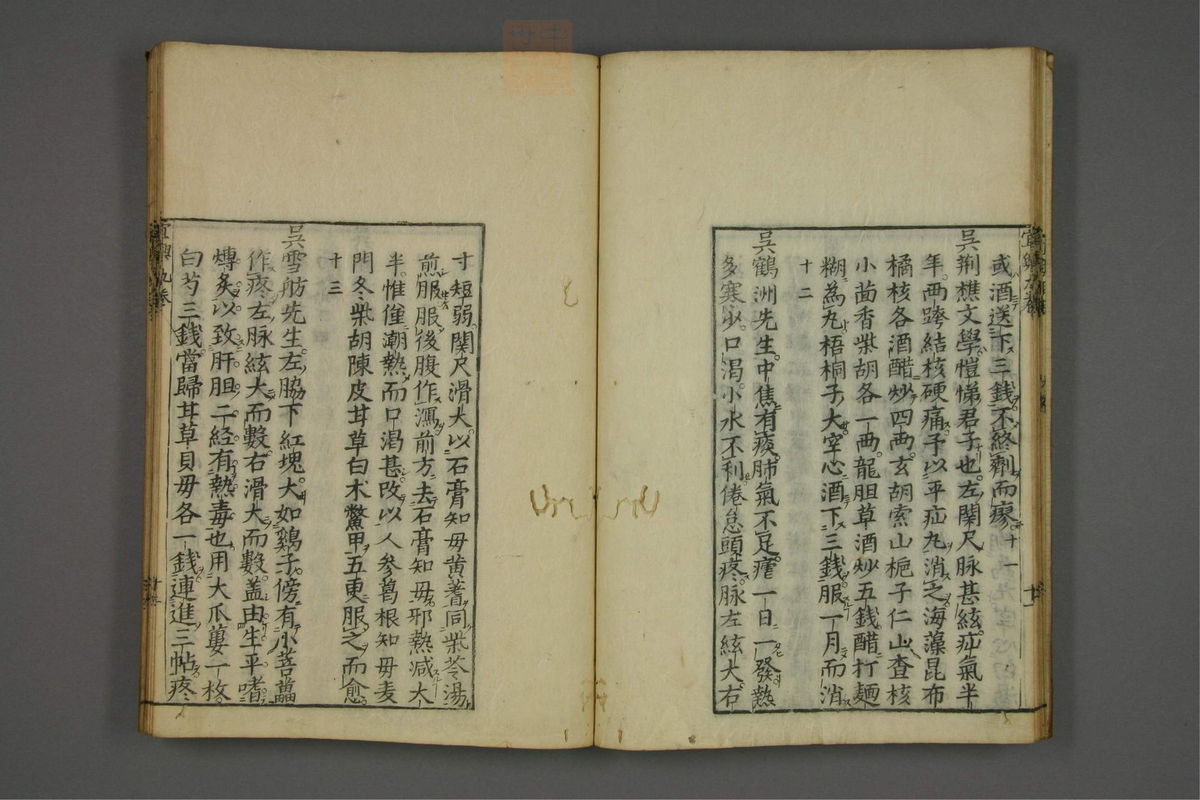 或酒送下三錢不終劑而瘳十一
吳荆樵文學愷悌君子也左関尺脉甚絃疝氣半
年両跨結核硬痛予以平疝丸消之海藻昆布
橘核各酒醋炒四両玄胡索山梔子仁山査核
小茴香柴胡各一両龍胆草酒炒五錢醋打麺
糊為丸梧桐子大空心酒下三錢服一月而消
十二
吳鶴洲先生中焦有痰肺氣不足瘧一日一發熱
多寒少口渴小水不利倦怠頭疼脉左絃大右
寸短弱関尺滑大以石膏知毋黄蓍同柴苓湯
煎服服後腹作瀉前方去石膏知毋邪熱减大
半惟僅潮熱而口渴甚改以人參葛根知毋麦
門冬柴胡陳皮甘草白术鱉甲五東服之而愈
十三
吳雪舫先生左脇下紅塊大如鷄子傍有小蓓蕌
作疼左脉絃大而數右滑大而數盖由生平嗜
煿炙以致肝胆二経有熱毒也用大瓜蔞一枚
白芍三錢當歸甘草貝毋各一錢連進三帖疼